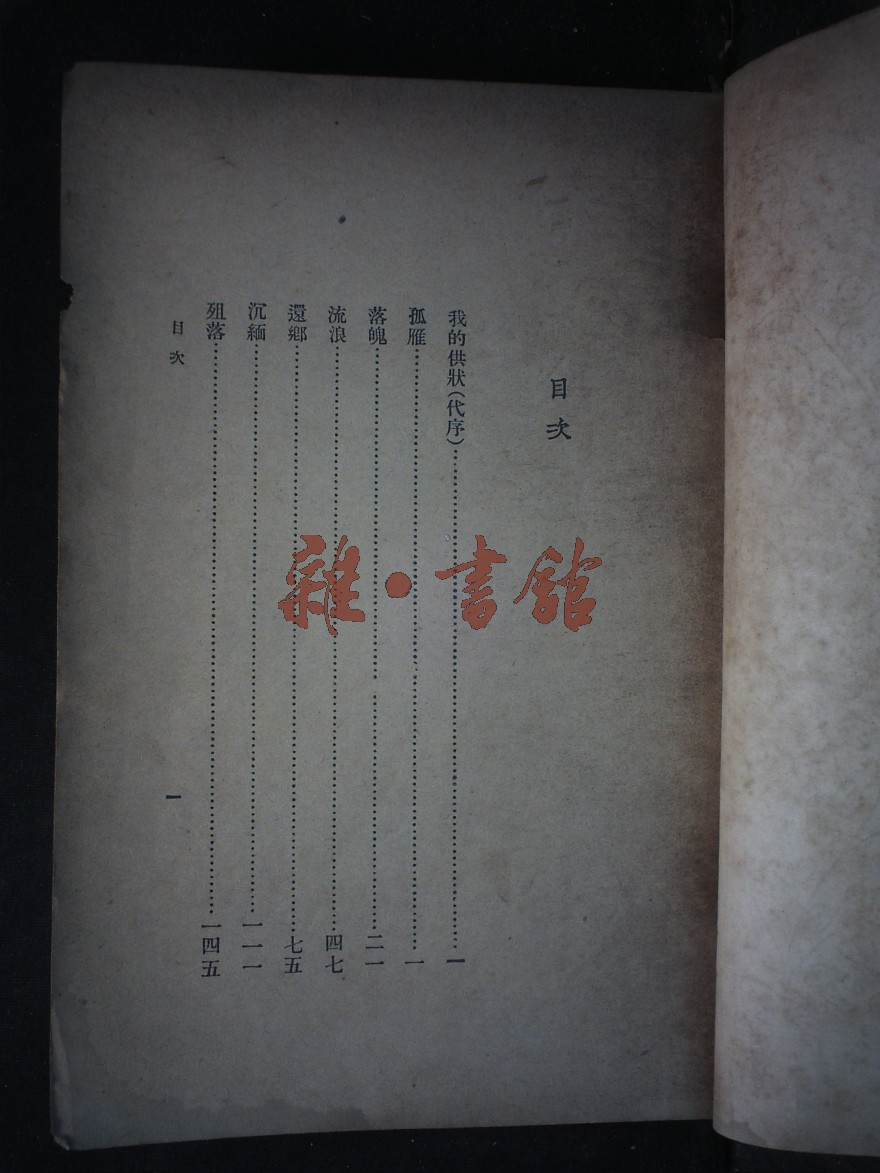 目次
我的供狀(代序)……一
孤雁……一
落魄……二一
流浪……四七
還鄉……七五
沉緬……一一一
殂落……一四五
目次
一
雜·書館